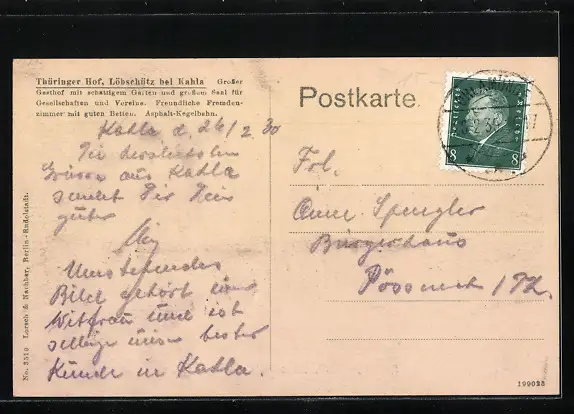 Thüringer Hof, Löbschütz bei Kahla Großer
Gasthof mit schattigem Garten und großem Saal für
Gesellschaften und Vereine. Freundliche Fremden-
zimmer mit guten Betten. Asphalt-Kegelbahn.
Kahla d. 26/2. 30
Die herzlichsten
Grüsse aus Kahla
sendet Dir Dein
guter
Umstehendes
Bild gehört einer
Witfrau und ist
selbige unser bester
Kunde in Kahla.
No. 3510 Lorsch & Nachbar, Berlin-Rudolstadt.
Postkarte.
Deutsches Reich
8 8
Frl.
Anne Spengler
Bürgerhaus
Pössneck / Th.
199028